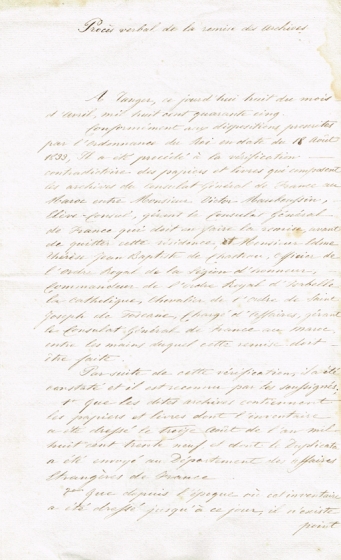 Procès verbal de la remise des Archives
A Tanger, ce jourd'hui huit du mois
d'avril, mil huit cent quarante cinq.
Conformément aux dispositions prescrites
par l'ordonnance du Roi en date du 18 Août
1833, Il a été procédé à la vérification
contradictoire des papiers et livres qui composent
les archives du Consulat Général de France au
Maroc entre Monsieur Victor
Elève-Consul, gérant le Consulat Général
de France qui doit en faire la remise avant
de quitter cette résidence, et Monsieur Edme
Thérèse Jean Baptiste de Chasteau, officier de
l'ordre Royal de la Légion d'honneur,
Commandeur de l'ordre Royal d'Isabelle
la Catholique, Chevalier de l'ordre de Saint
Joseph de Toscane, Chargé d'affaires, gérant
le Consulat Général de France au Maroc,
entre les mains duquel cette remise doit
être faite.
Par suite de cette vérification, il a été
constaté et il est reconnu par les soussignés
1º que les dites archives contiennent
les papiers et livres dont l'inventaire
a été dressé le treize Août de l'an mil
huit cent trente neuf et dont le Duplicata
a été envoyé au Département des affaires
Etrangères de France
2º Que depuis l'époque où cet inventaire
a été dressé jusqu'à ce jour, il n'existe
point